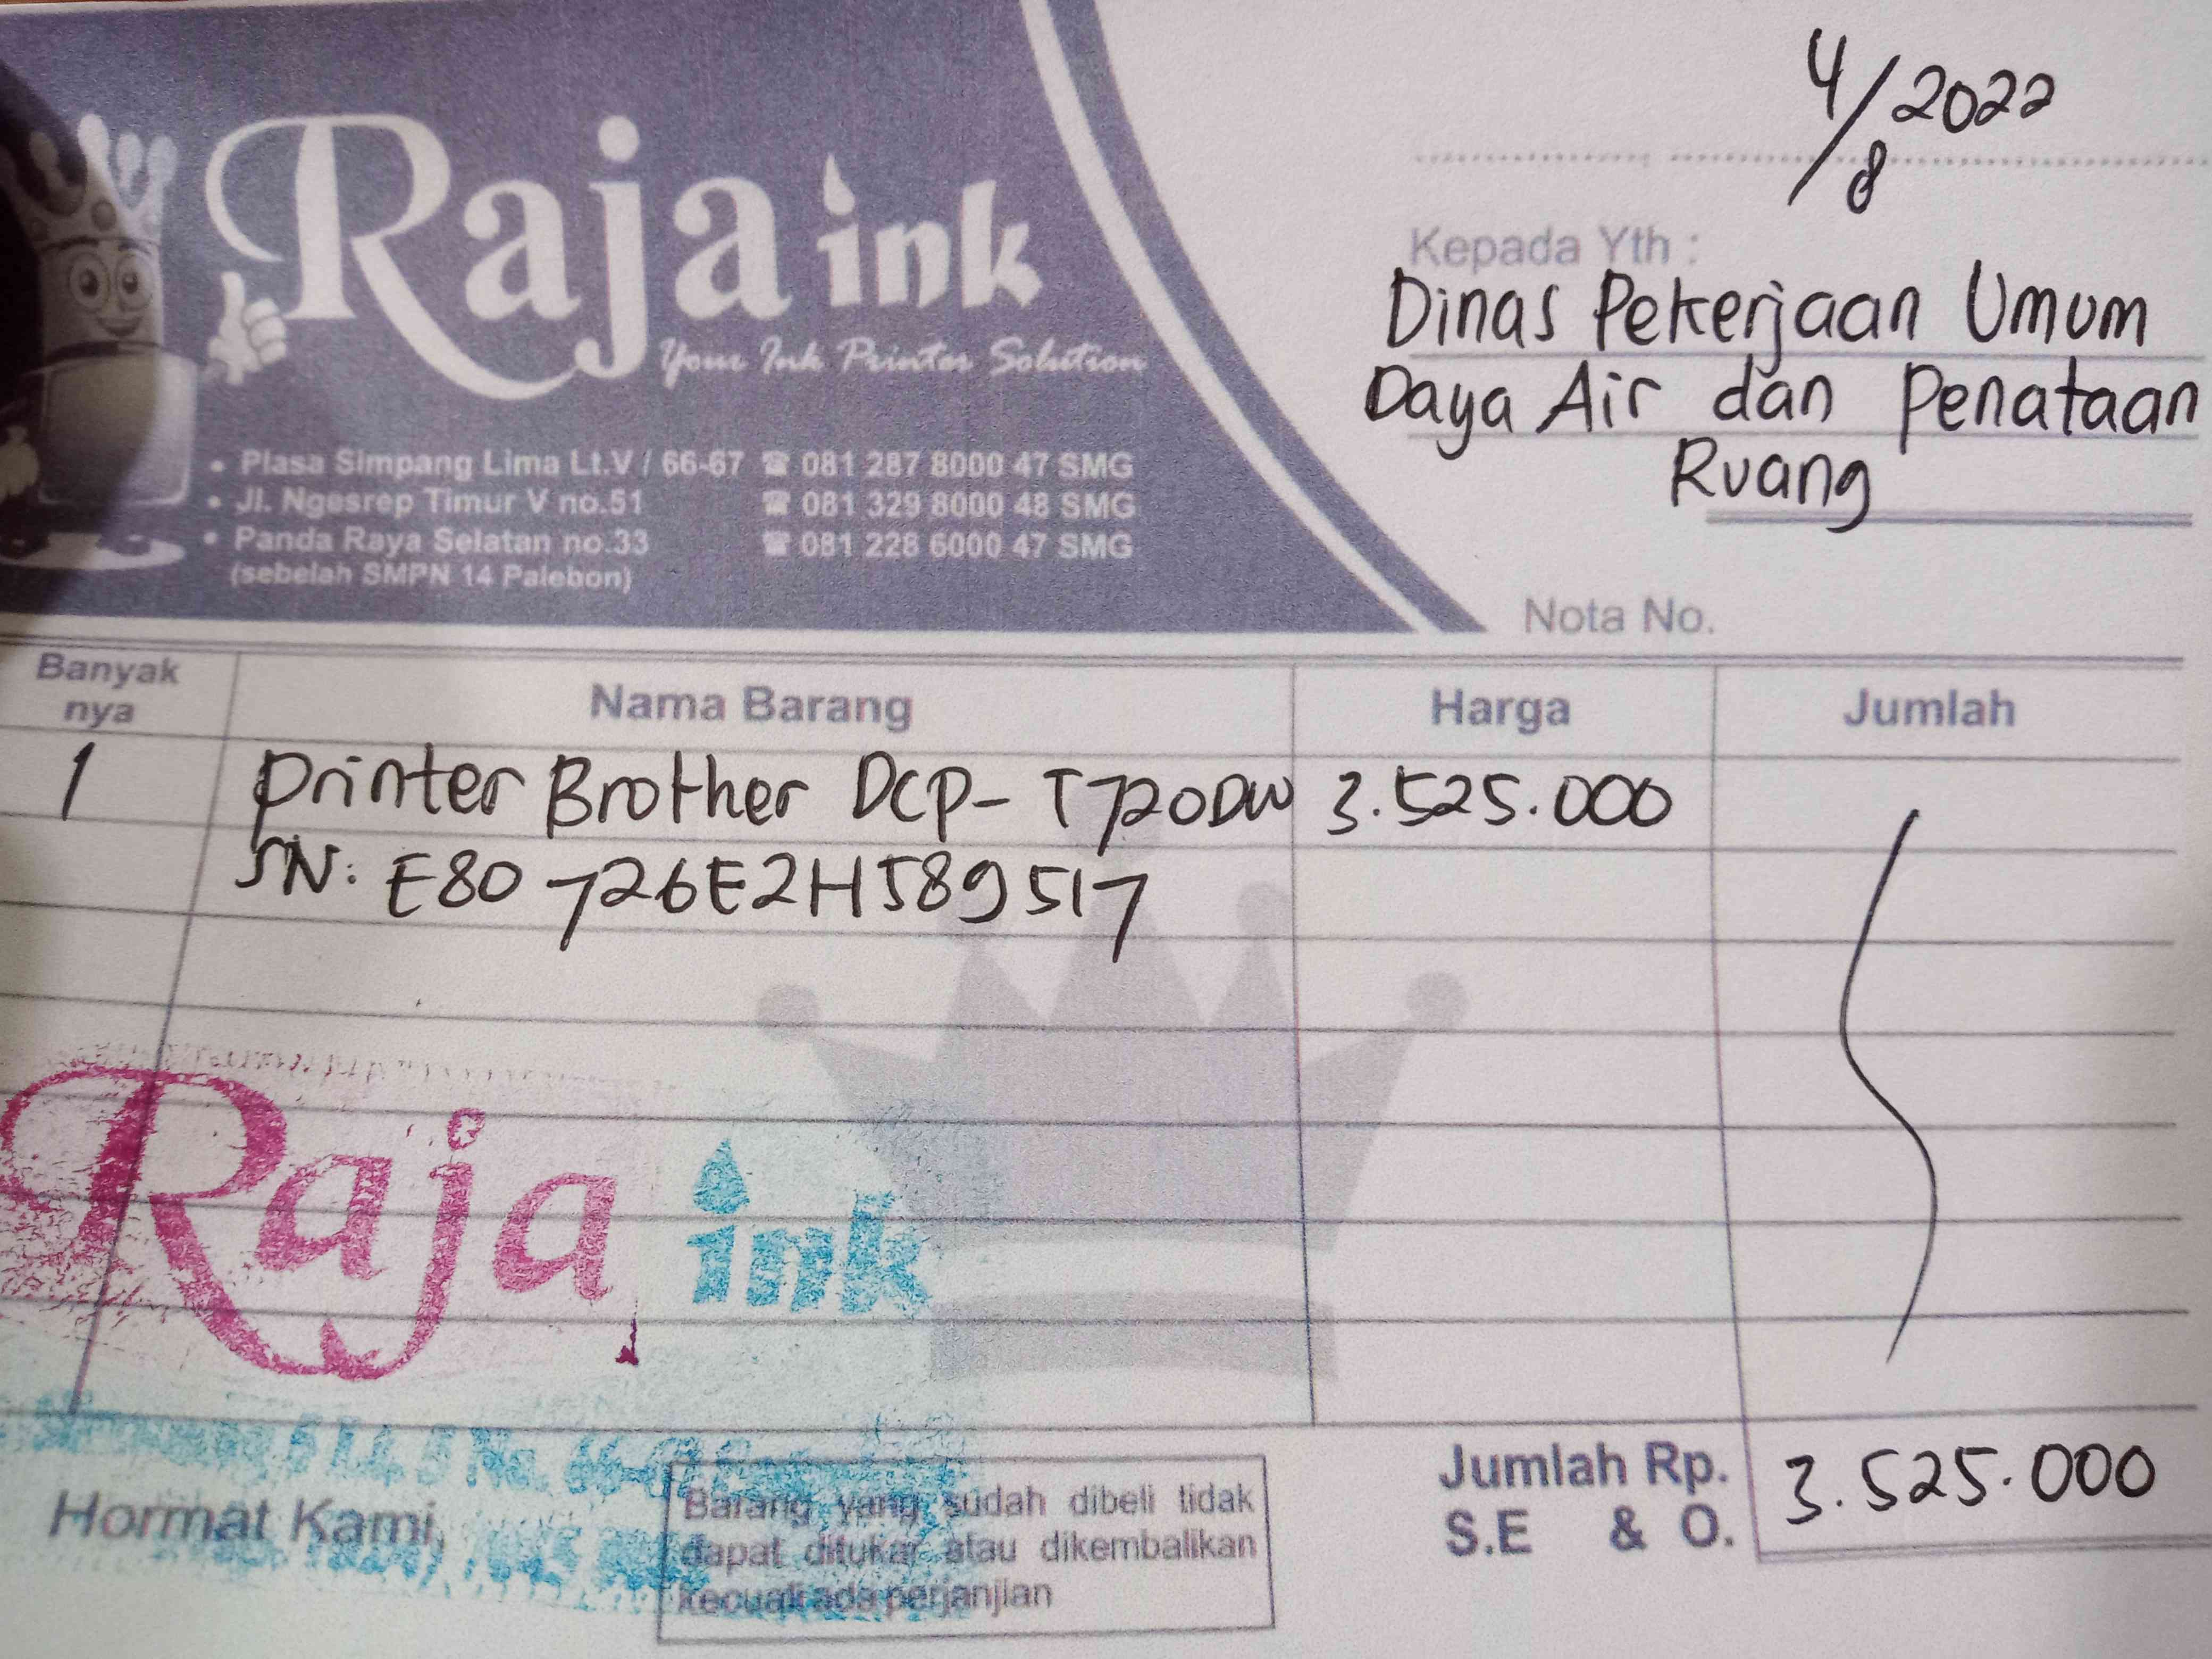 4/8 2022
Raja ink
Your Ink Printer Solution
• Plasa Simpang Lima Lt.V / 66-67 ☎ 081 287 8000 47 SMG
• Jl. Ngesrep Timur V no.51 ☎ 081 329 8000 48 SMG
• Panda Raya Selatan no.33 ☎ 081 228 6000 47 SMG
(sebelah SMPN 14 Palebon)
Kepada Yth :
Dinas Pekerjaan Umum
Daya Air dan Penataan
Ruang
Nota No.
Banyak nya Nama Barang Harga Jumlah
1 Printer Brother DCP-T720DW 3.525.000
SN: E80726E2H589517
Raja ink
5 Lt. 5 No. 66-67
Hormat Kami,
Barang yang sudah dibeli tidak
dapat ditukar atau dikembalikan
kecuali ada perjanjian
Jumlah Rp. 3.525.000
S.E & O.